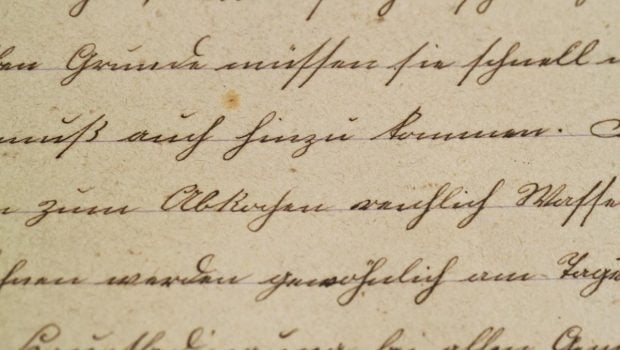 Grunde müssen sie schnell
muß auch hinzu kommen.
zum Abkochen reichlich Wasse
hnen werden gewöhnlich am Tage
bei allen